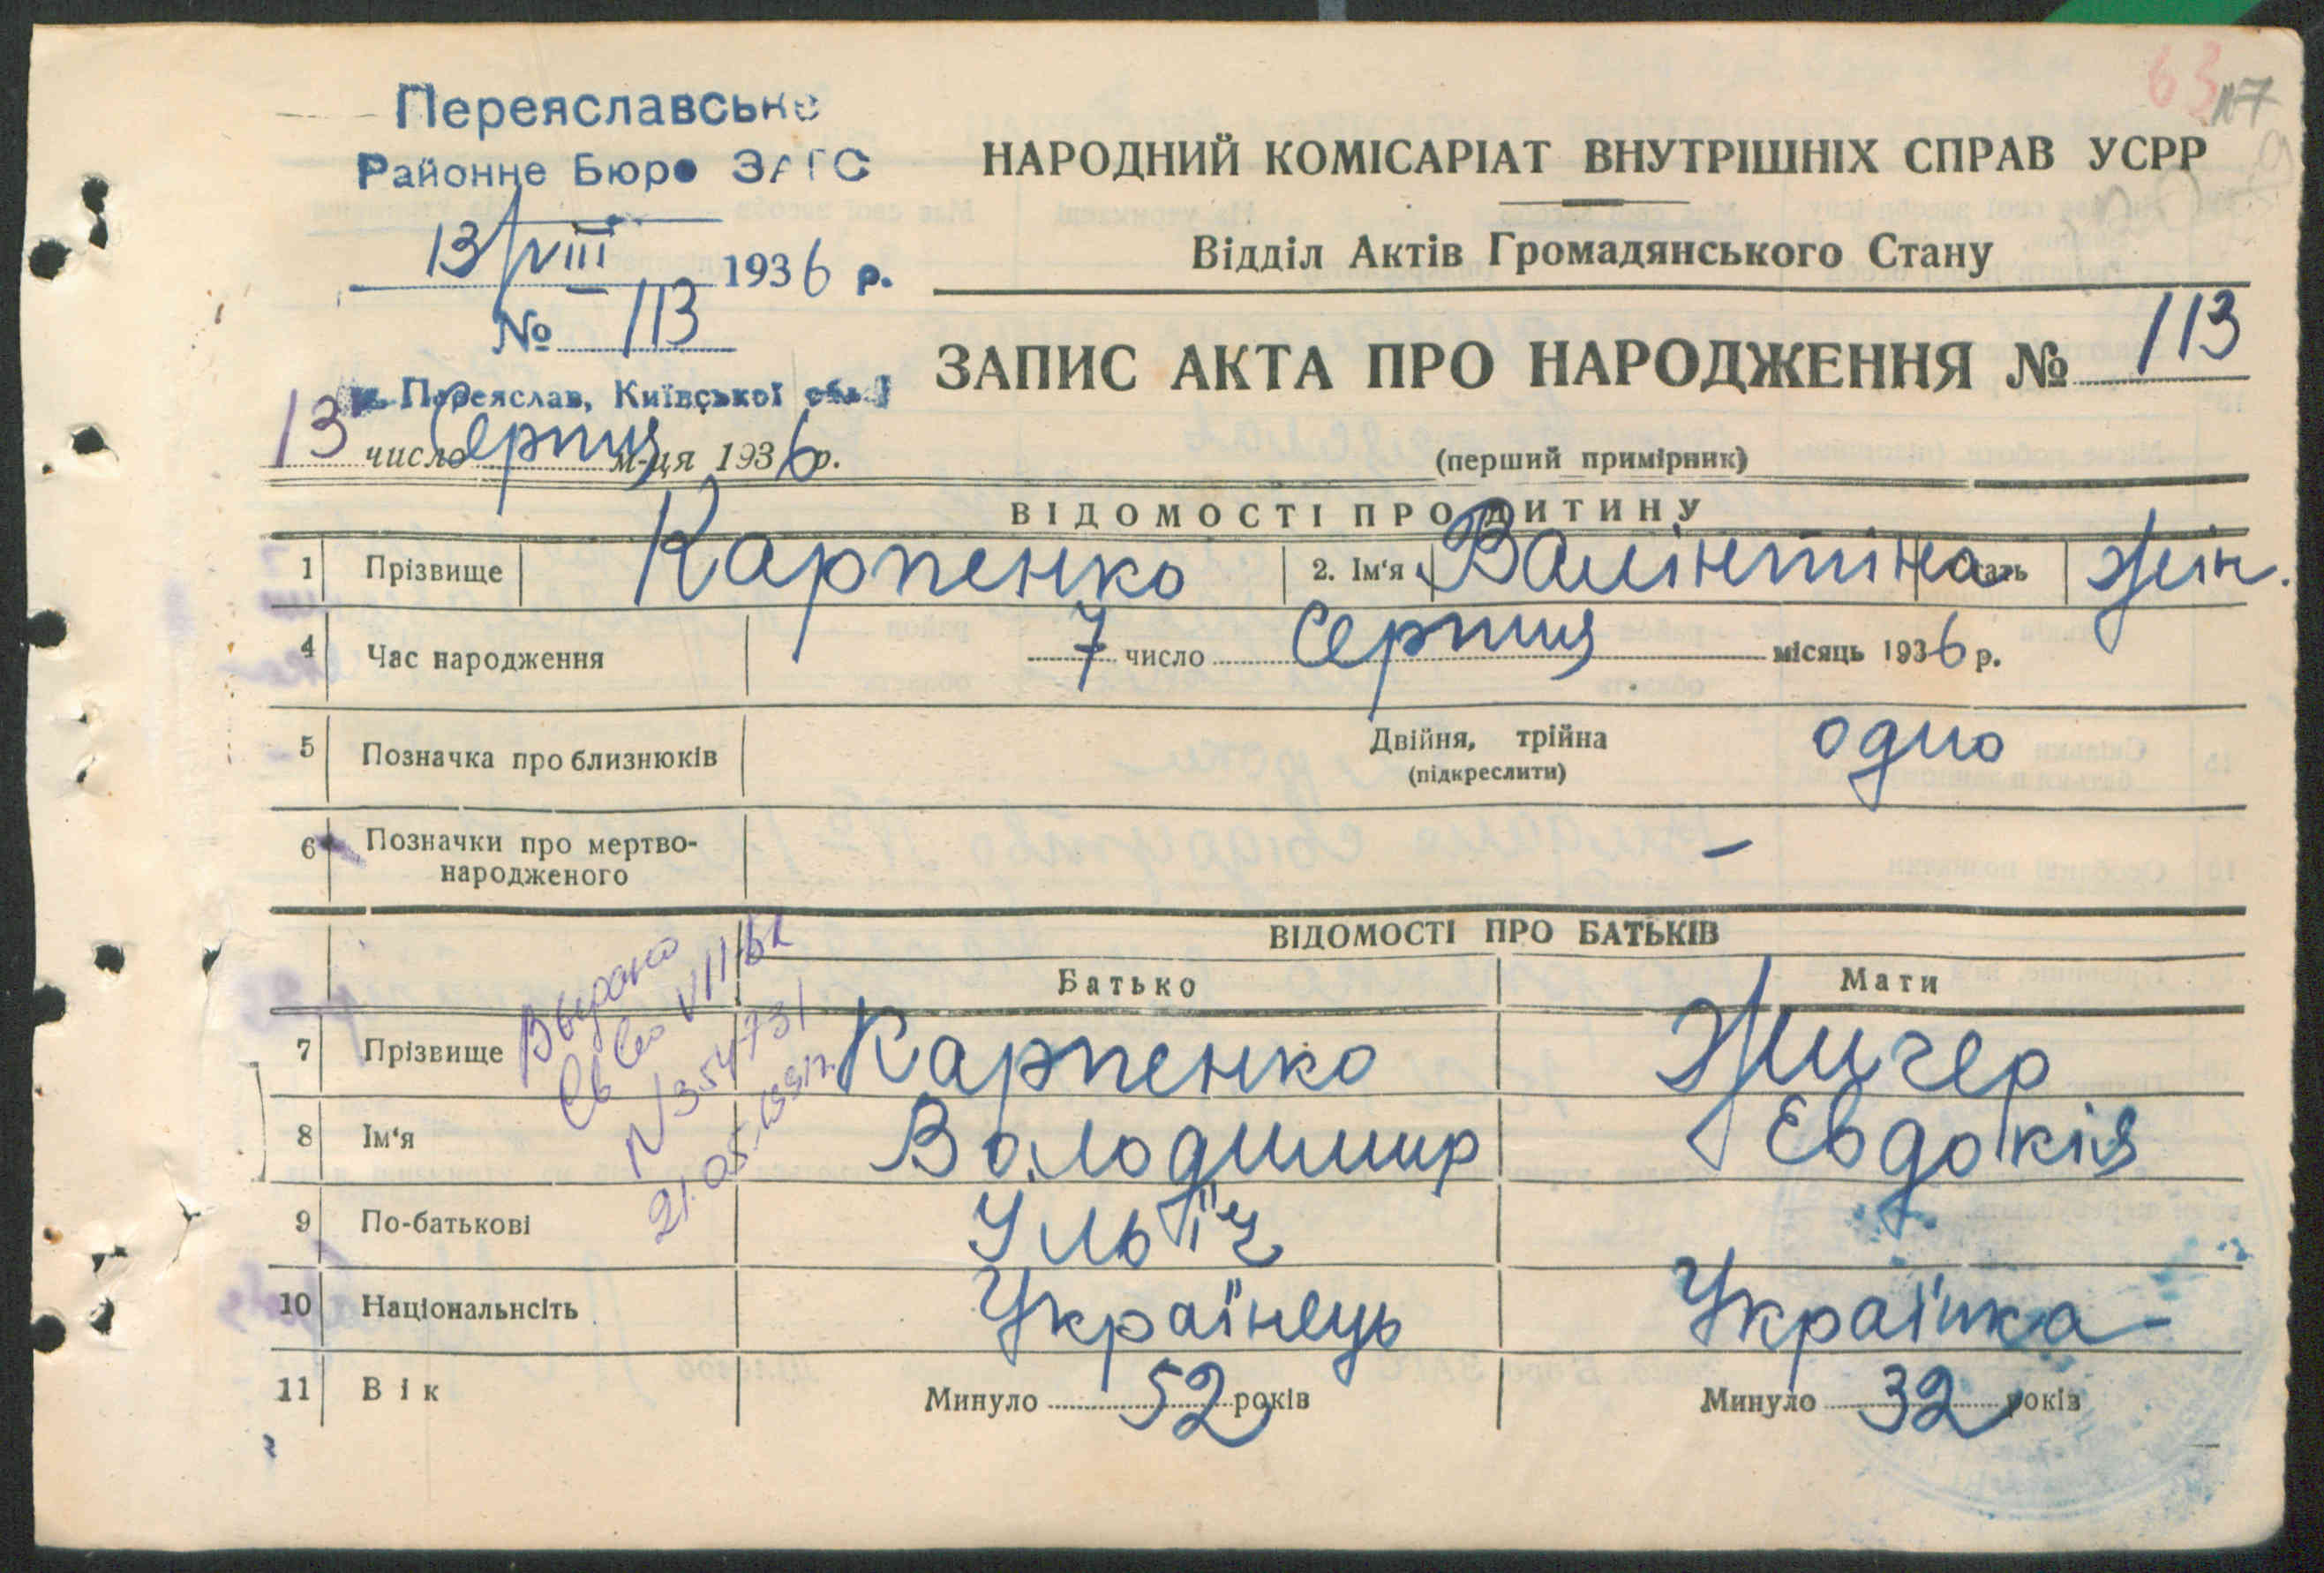 63 117
Переяславське
Районне Бюро ЗАГС
13/VIII 1936 р.
№ 113
м. Переяслав, Київської обл.
13 число Серпня м-ця 1936 р.
НАРОДНИЙ КОМІСАРІАТ ВНУТРІШНІХ СПРАВ УСРР
Відділ Актів Громадянського Стану
ЗАПИС АКТА ПРО НАРОДЖЕННЯ № 113
(перший примірник)
ВІДОМОСТІ ПРО ДИТИНУ
1 Прізвище Карпенко 2. Ім'я Валінтіна стать жін.
4 Час народження 7 число Серпня місяць 1936 р.
5 Позначка про близнюків Двійня, трійна одно
(підкреслити)
6 Позначки про мертво-
народженого –
ВІДОМОСТІ ПРО БАТЬКІВ
Батько Мати
7 Прізвище Карпенко Жигер
8 Ім'я Володимир Євдокія
9 По-батькові Ульїч
10 Національнсіть Українець Українка
11 Вік Минуло 52 років Минуло 32 років
Выдано
N 354731
21.05.